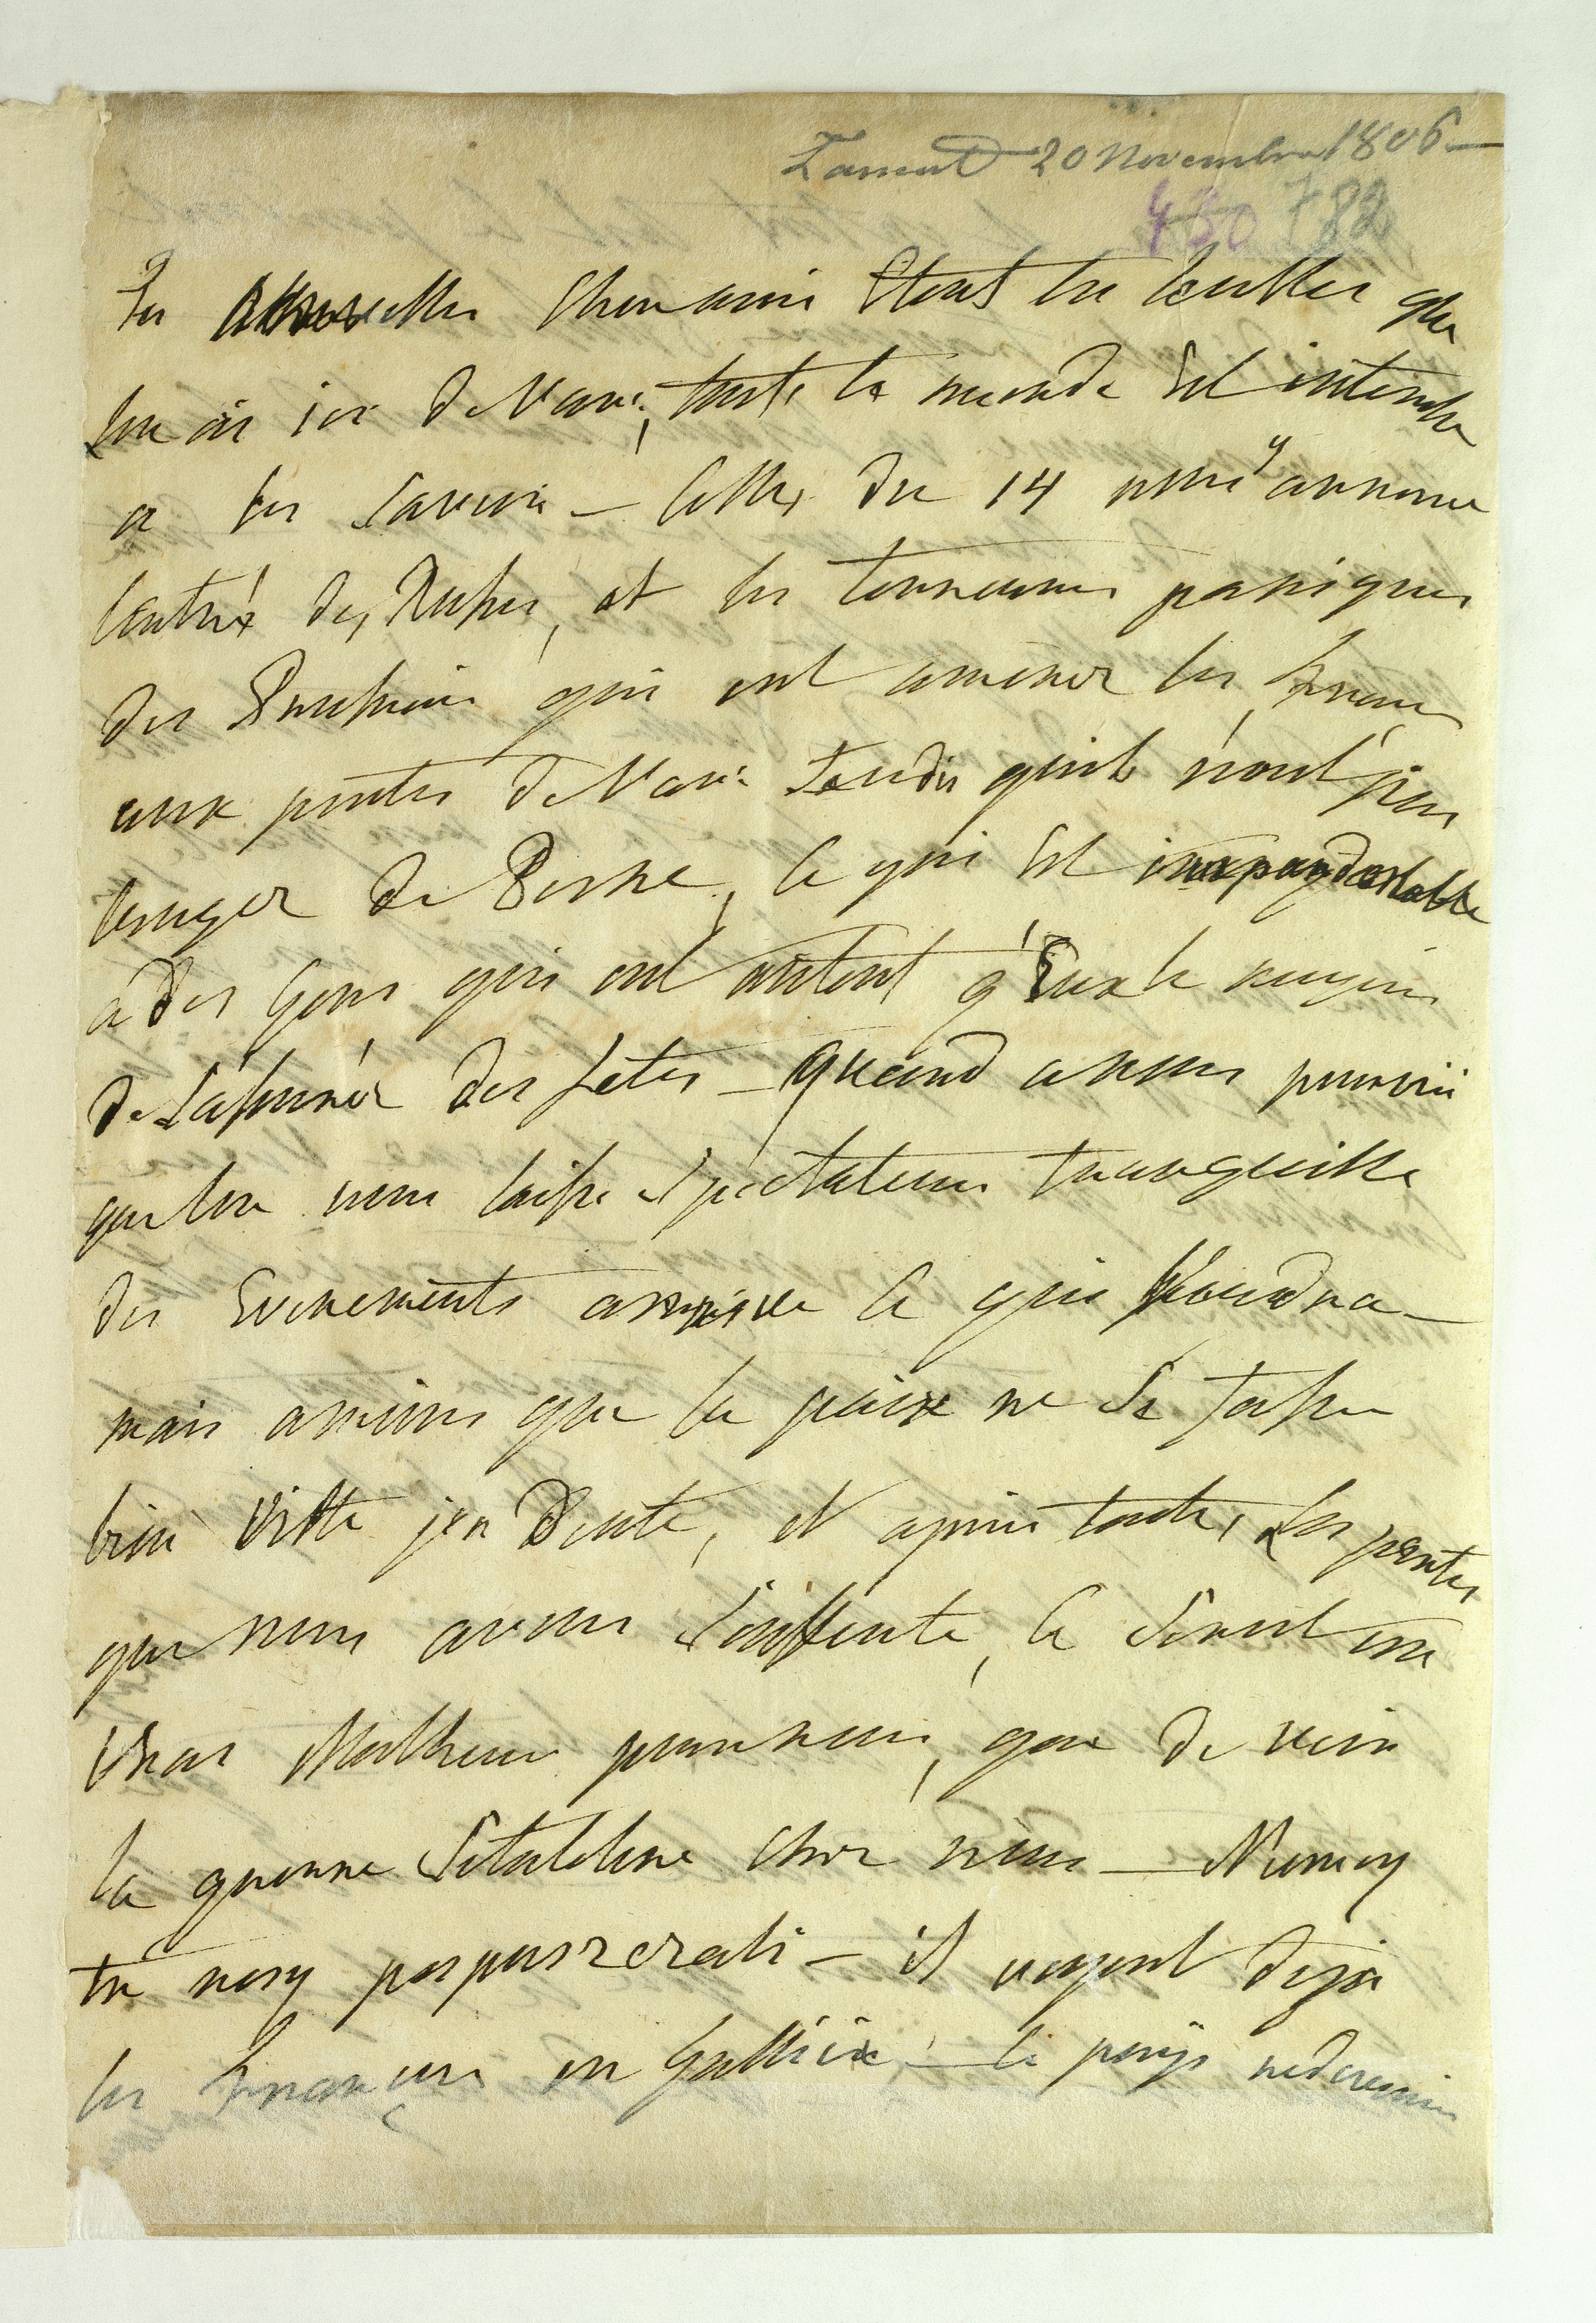 Lancut 20 Novembre 1806 —
450 782
Tes nouvelles Cher ami étant les seulles que
lon ai ici de Varso; toute le monde est interessé
a les savoir — celles du 14 9bre annonce
lentré des Russes, et les terreures paniques
des Prussiens qui ont amener les Francs
aux portes de Varso tandis quils n'ont pas
bouger de Posne, ce qui est inxpardonable
a des Gens qui ont autant q'eux le moyens
de sassurer des fetes — quand a nous pourvu
que lon nous laisse spectateurs tranquille
des Evenements arrive ce qui voudra —
mais amoins que la paix ne se fasse
bien vitte jen doute, et apres toutes les pertes
que nous avons souffente, ce seroit un
vrai Malheur pour nous, que de voir
la guerre setablire chez nous — Niemcy
tu nosy pospuszczali — il voyent deja
les Français en Gallicie — le pays